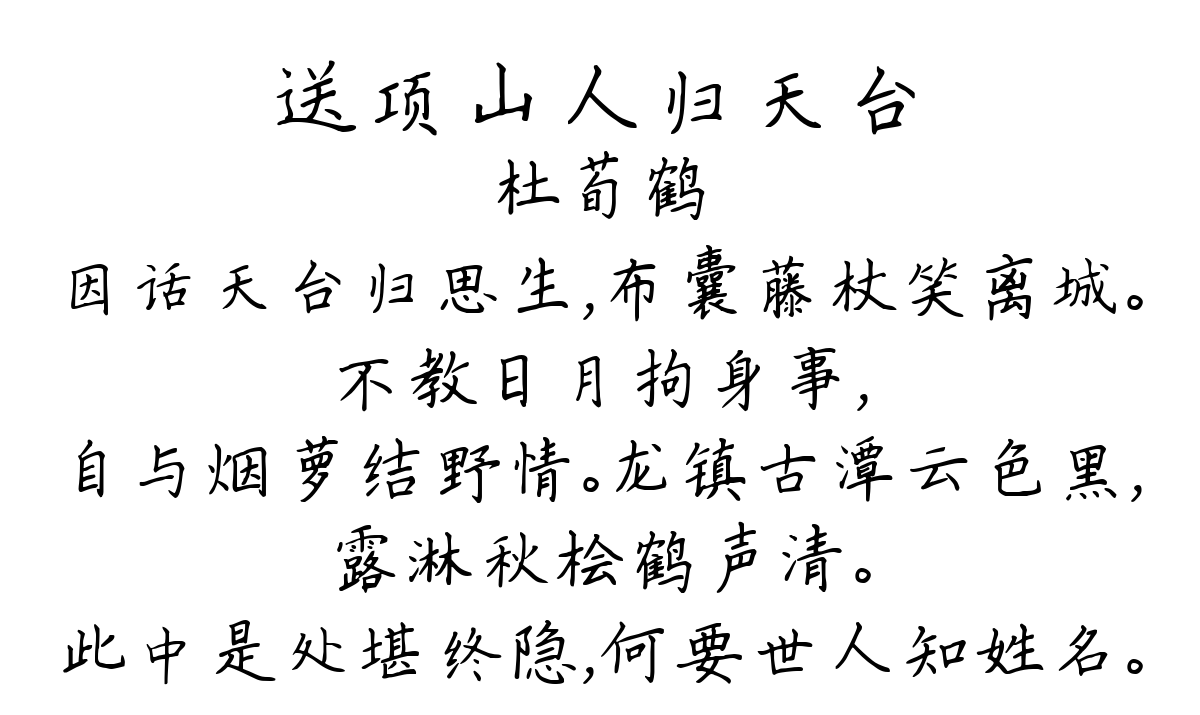 送项山人归天台
杜荀鹤
因话天台归思生,布囊藤杖笑离城。
不教日月拘身事,
自与烟萝结野情。龙镇古潭云色黑,
露淋秋桧鹤声清。
此中是处堪终隐,何要世人知姓名。